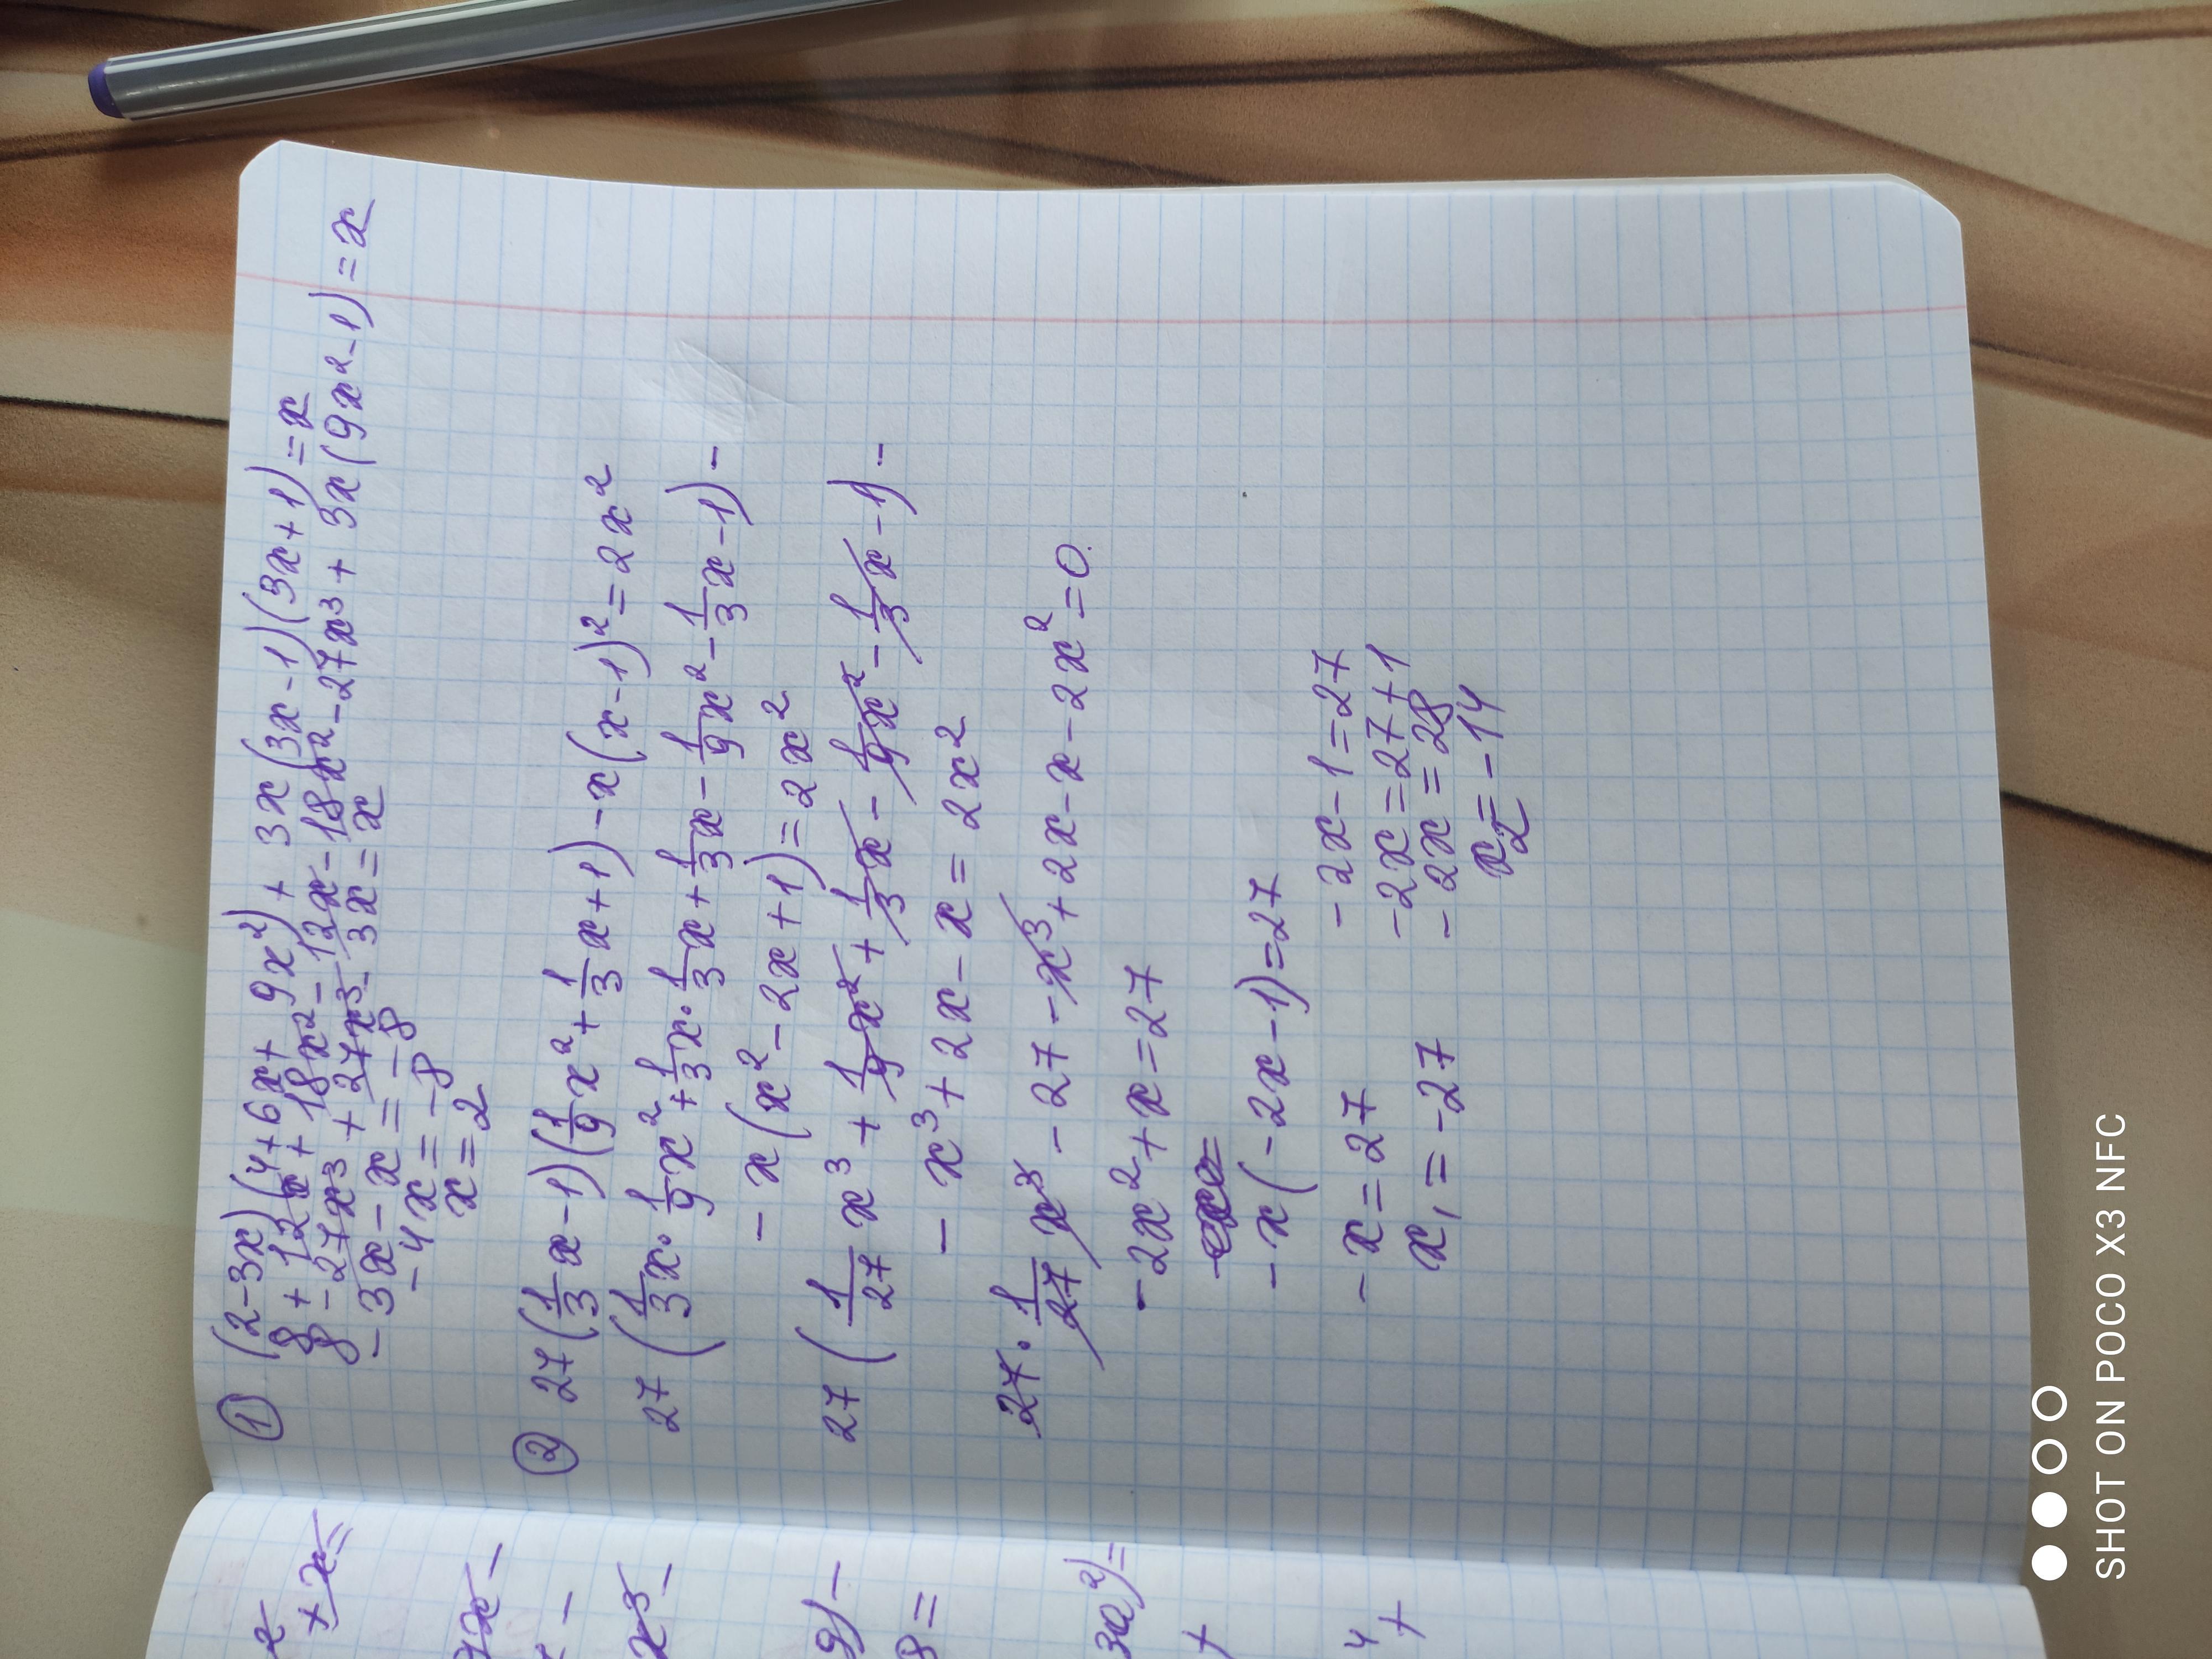 ① (2-3x)(4+6x+9x²)+3x(3x-1)(3x+1)=x
8+12x+18x²-12x-18x²-27x³+3x(9x²-1)=x
8-27x³+27x³-3x=x
-3x-x=-8
-4x=-8
x=2
② 27(1/3x-1)(1/9x²+1/3x+1)-x(x-1)²=2x²
27(1/3x·1/9x²+1/3x·1/3x+1/3x-1/9x²-1/3x-1)-
-x(x²-2x+1)=2x²
27(1/27x³+1/9x²+1/3x-1/9x²-1/3x-1)-
-x³+2x-x=2x²
27·1/27x³-27-x³+2x-x-2x²=0.
-2x²+x=27
-x(-2x-1)=27
-x=27 -2x-1=27
x₁=-27 -2x=27+1
-2x=28
x₂=-14
+x=
-
-
x³-
9)-
8=
3a²)=
+
4
+
SHOT ON POCO X3 NFC